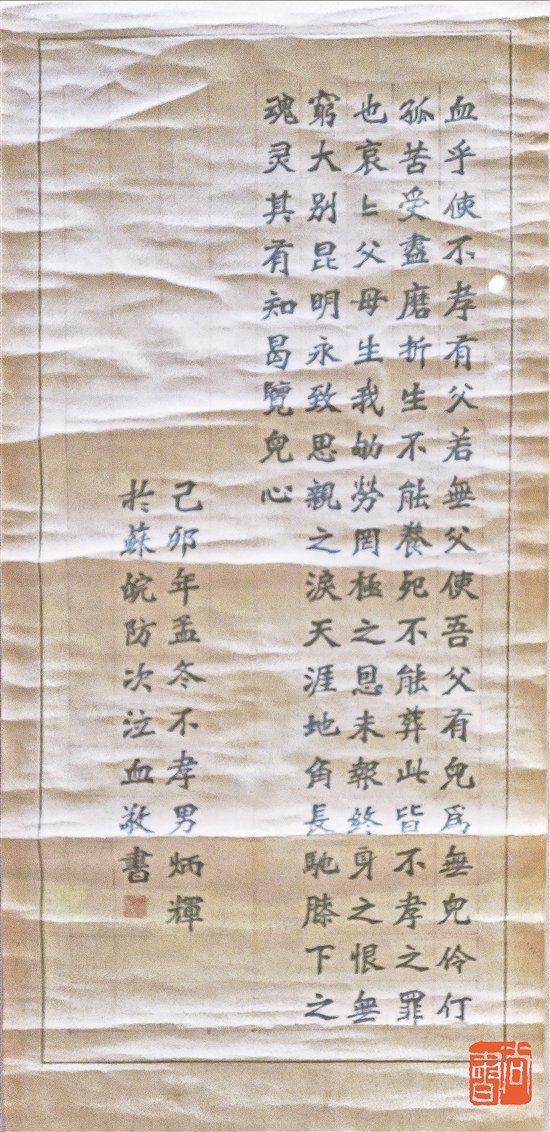 血乎使不孝有父若無父使吾父有兒爲無兒伶仃
孤苦受盡磨折生不能養死不能葬此皆不孝之罪
也哀哀父母生我劬勞罔極之恩未報終身之恨無
窮大别昆明永致思親之淚天涯地角長馳膝下之
魂灵其有知曷覽兒心
己卯年孟冬不孝男炳輝
於蘇皖防次泣血敬書